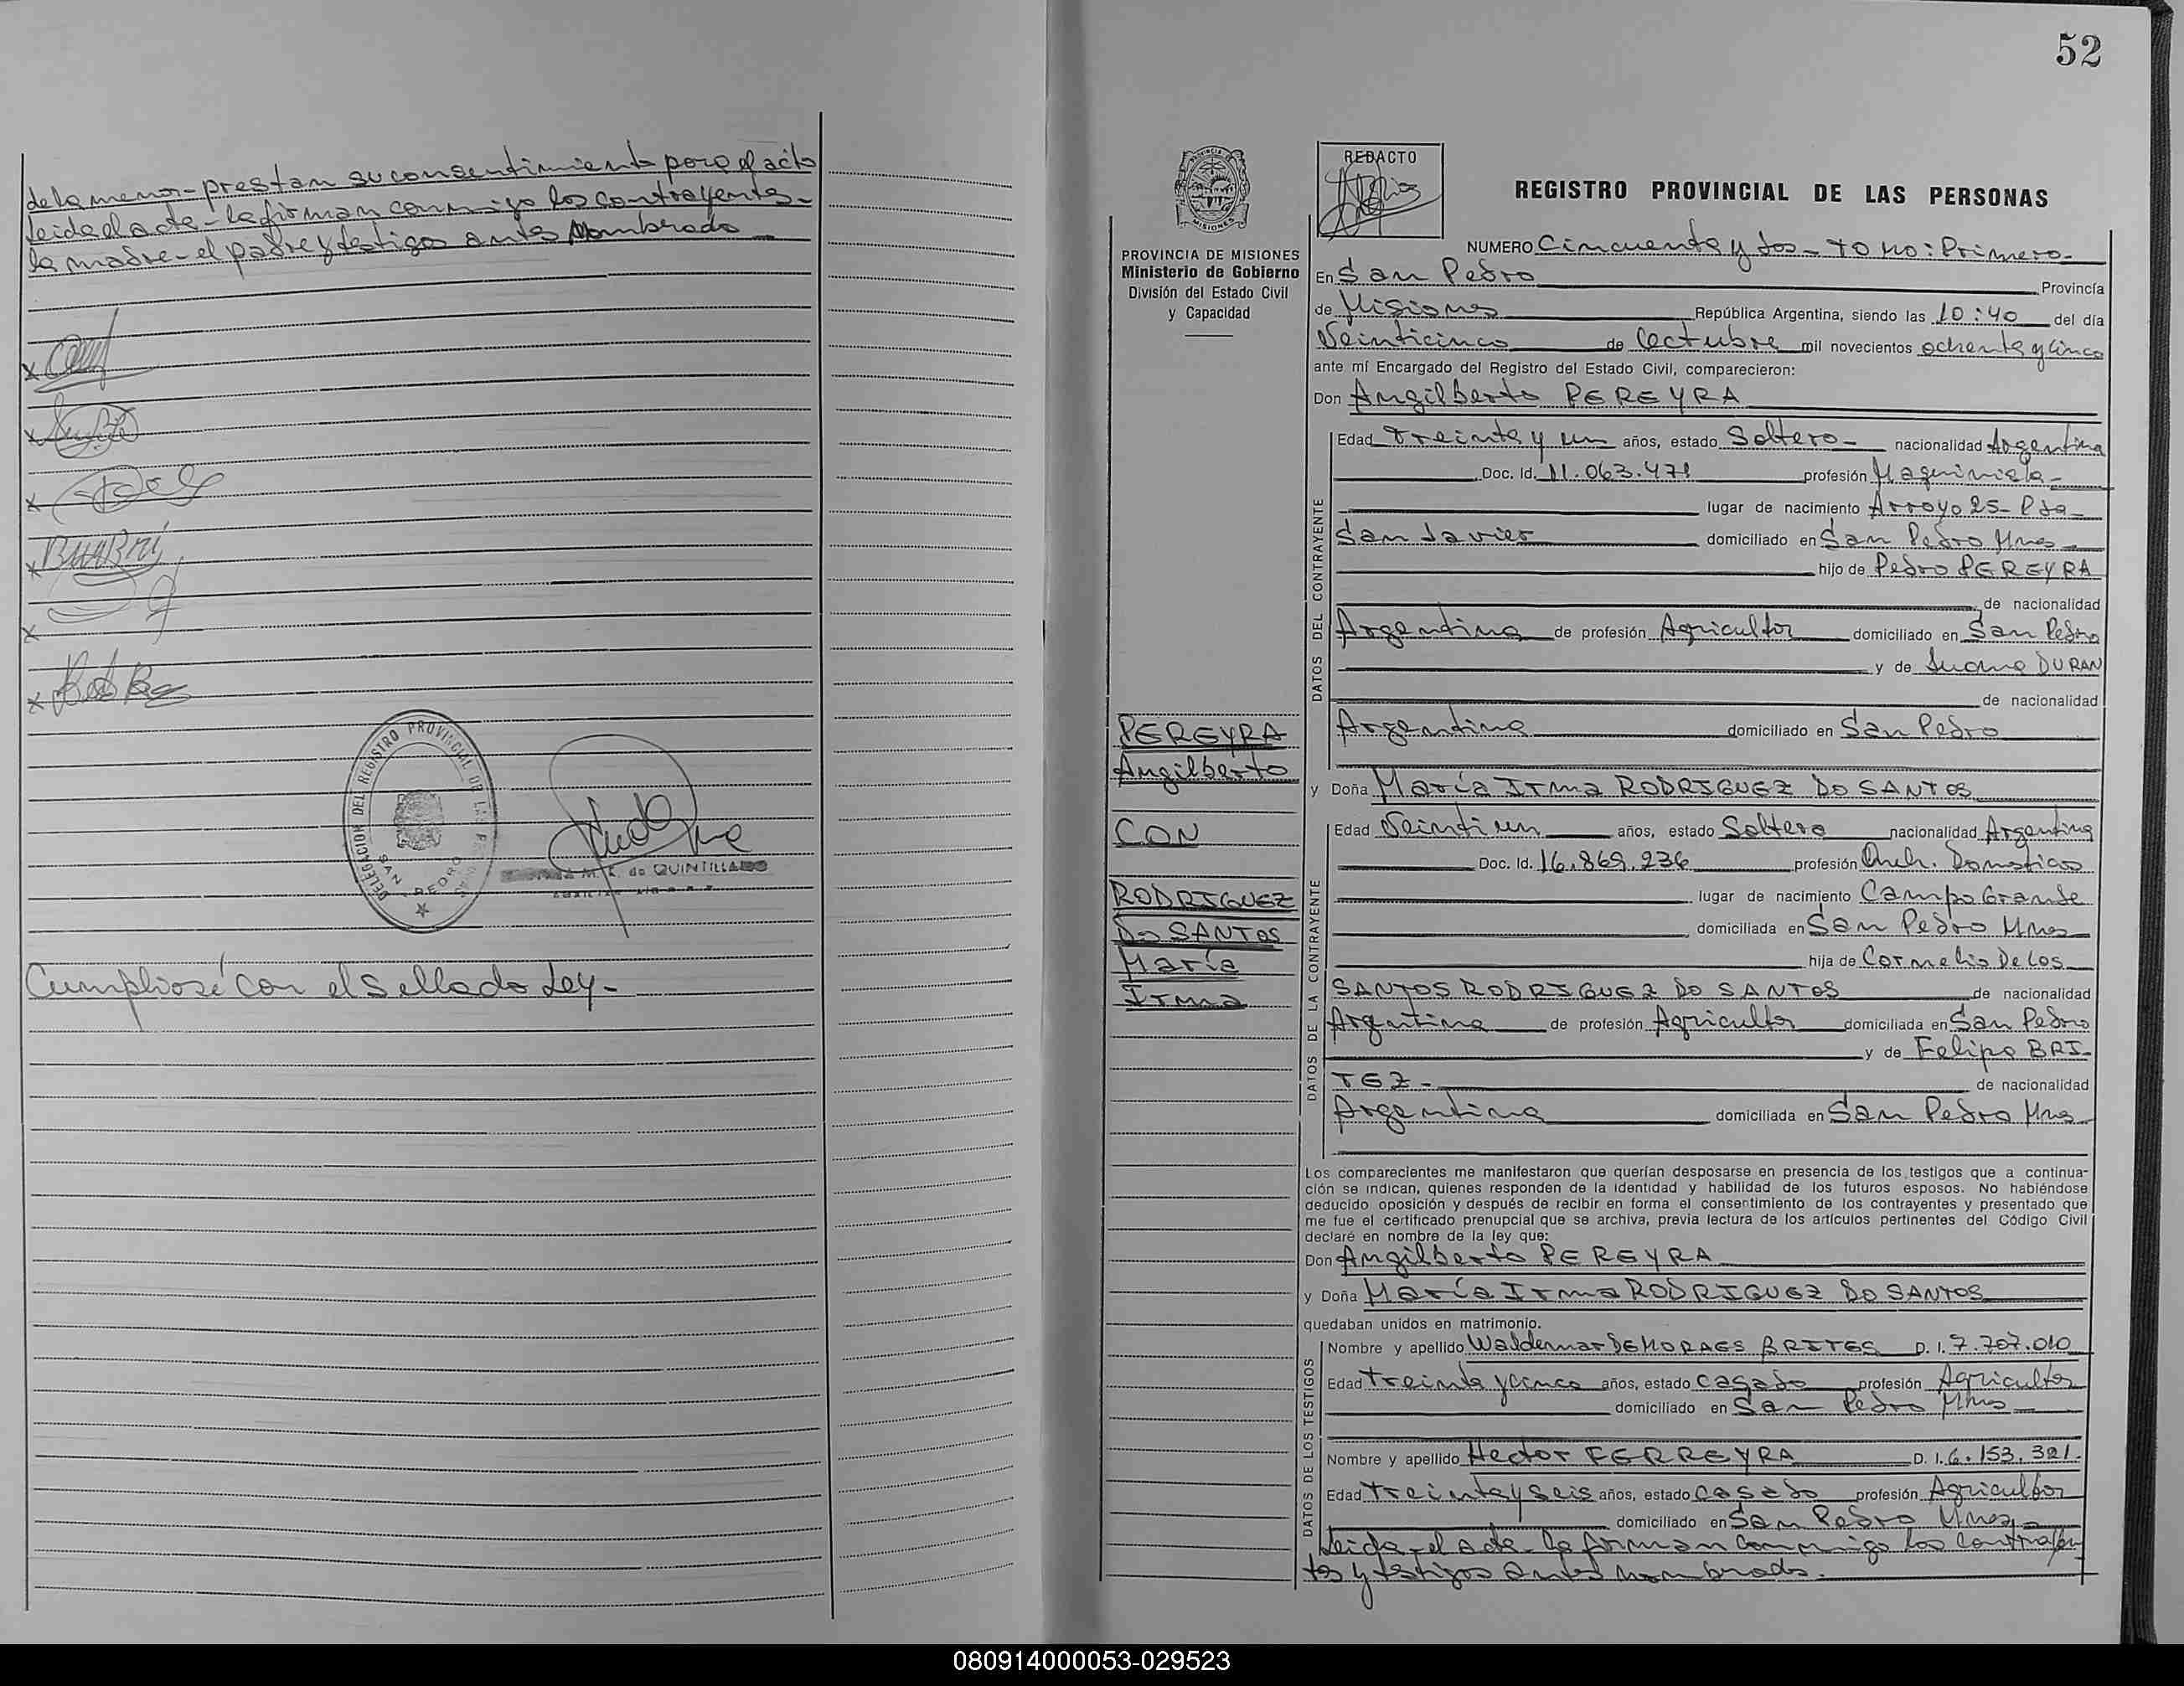 de la menor - prestan su consentimiento para el acto
leida el acta - la firman conmigo los contrayentes -
la madre - el padre y testigos antes nombrado
DELEGACION DEL REGISTRO PROVINCIAL DE LAS
SAN PEDRO
M. K. de QUINTILLADO
Cumpliose con el Sellado Ley -
52
PROVINCIA DE MISIONES
Ministerio de Gobierno
División del Estado Civil
y Capacidad
PEREYRA
Angilberto
CON
RODRIGUEZ
DO SANTOS
María
Irma
REDACTO
REGISTRO PROVINCIAL DE LAS PERSONAS
NUMERO Cincuenta y dos - TOMO: Primero -
En San Pedro Provincia
de Misiones República Argentina, siendo las 10:40 del día
Veinticinco de Octubre mil novecientos ochenta y cinco
ante mí Encargado del Registro del Estado Civil, comparecieron:
Don Angilberto PEREYRA
DATOS DEL CONTRAYENTE
Edad Treinta y un años, estado Soltero - nacionalidad Argentina
Doc. Id. 11.063.471 profesión Maquinista -
lugar de nacimiento Arroyo 25 - Pda -
San Javier domiciliado en San Pedro Mnes
hijo de Pedro PEREYRA
de nacionalidad
Argentina de profesión Agricultor domiciliado en San Pedro
y de DURAN
de nacionalidad
Argentina domiciliado en San Pedro
y Doña María Irma RODRIGUEZ DO SANTOS
DATOS DE LA CONTRAYENTE
Edad Veintiun años, estado Soltera nacionalidad Argentina
Doc. Id. 16.869.236 profesión Queh. Domesticos
lugar de nacimiento Campo Grande
domiciliada en San Pedro Mnes
hija de Cornelio De Los
SANTOS RODRIGUEZ DO SANTOS de nacionalidad
Argentina de profesión Agricultor domiciliada en San Pedro
y de Felipa BRI-
TEZ - de nacionalidad
Argentina domiciliada en San Pedro Mnes
Los comparecientes me manifestaron que querían desposarse en presencia de los testigos que a continua-
ción se indican, quienes responden de la identidad y habilidad de los futuros esposos. No habiéndose
deducido oposición y después de recibir en forma el consentimiento de los contrayentes y presentado que
me fue el certificado prenupcial que se archiva, previa lectura de los artículos pertinentes del Código Civil
declaré en nombre de la ley que:
Don Angilberto PEREYRA
y Doña María Irma RODRIGUEZ DO SANTOS
quedaban unidos en matrimonio.
DATOS DE LOS TESTIGOS
Nombre y apellido Waldemar DEMORAES BRITES D. I. 7.707.010
Edad treinta y cinco años, estado casado profesión Agricultor
domiciliado en San Pedro Mnes
Nombre y apellido Hector FERREYRA D. I. 6.153.321.
Edad treinta y seis años, estado casado profesión Agricultor
domiciliado en San Pedro Mnes -
Leida - el acta - la firman conmigo los contrayen
tes y testigos antes nombrado.
080914000053-029523